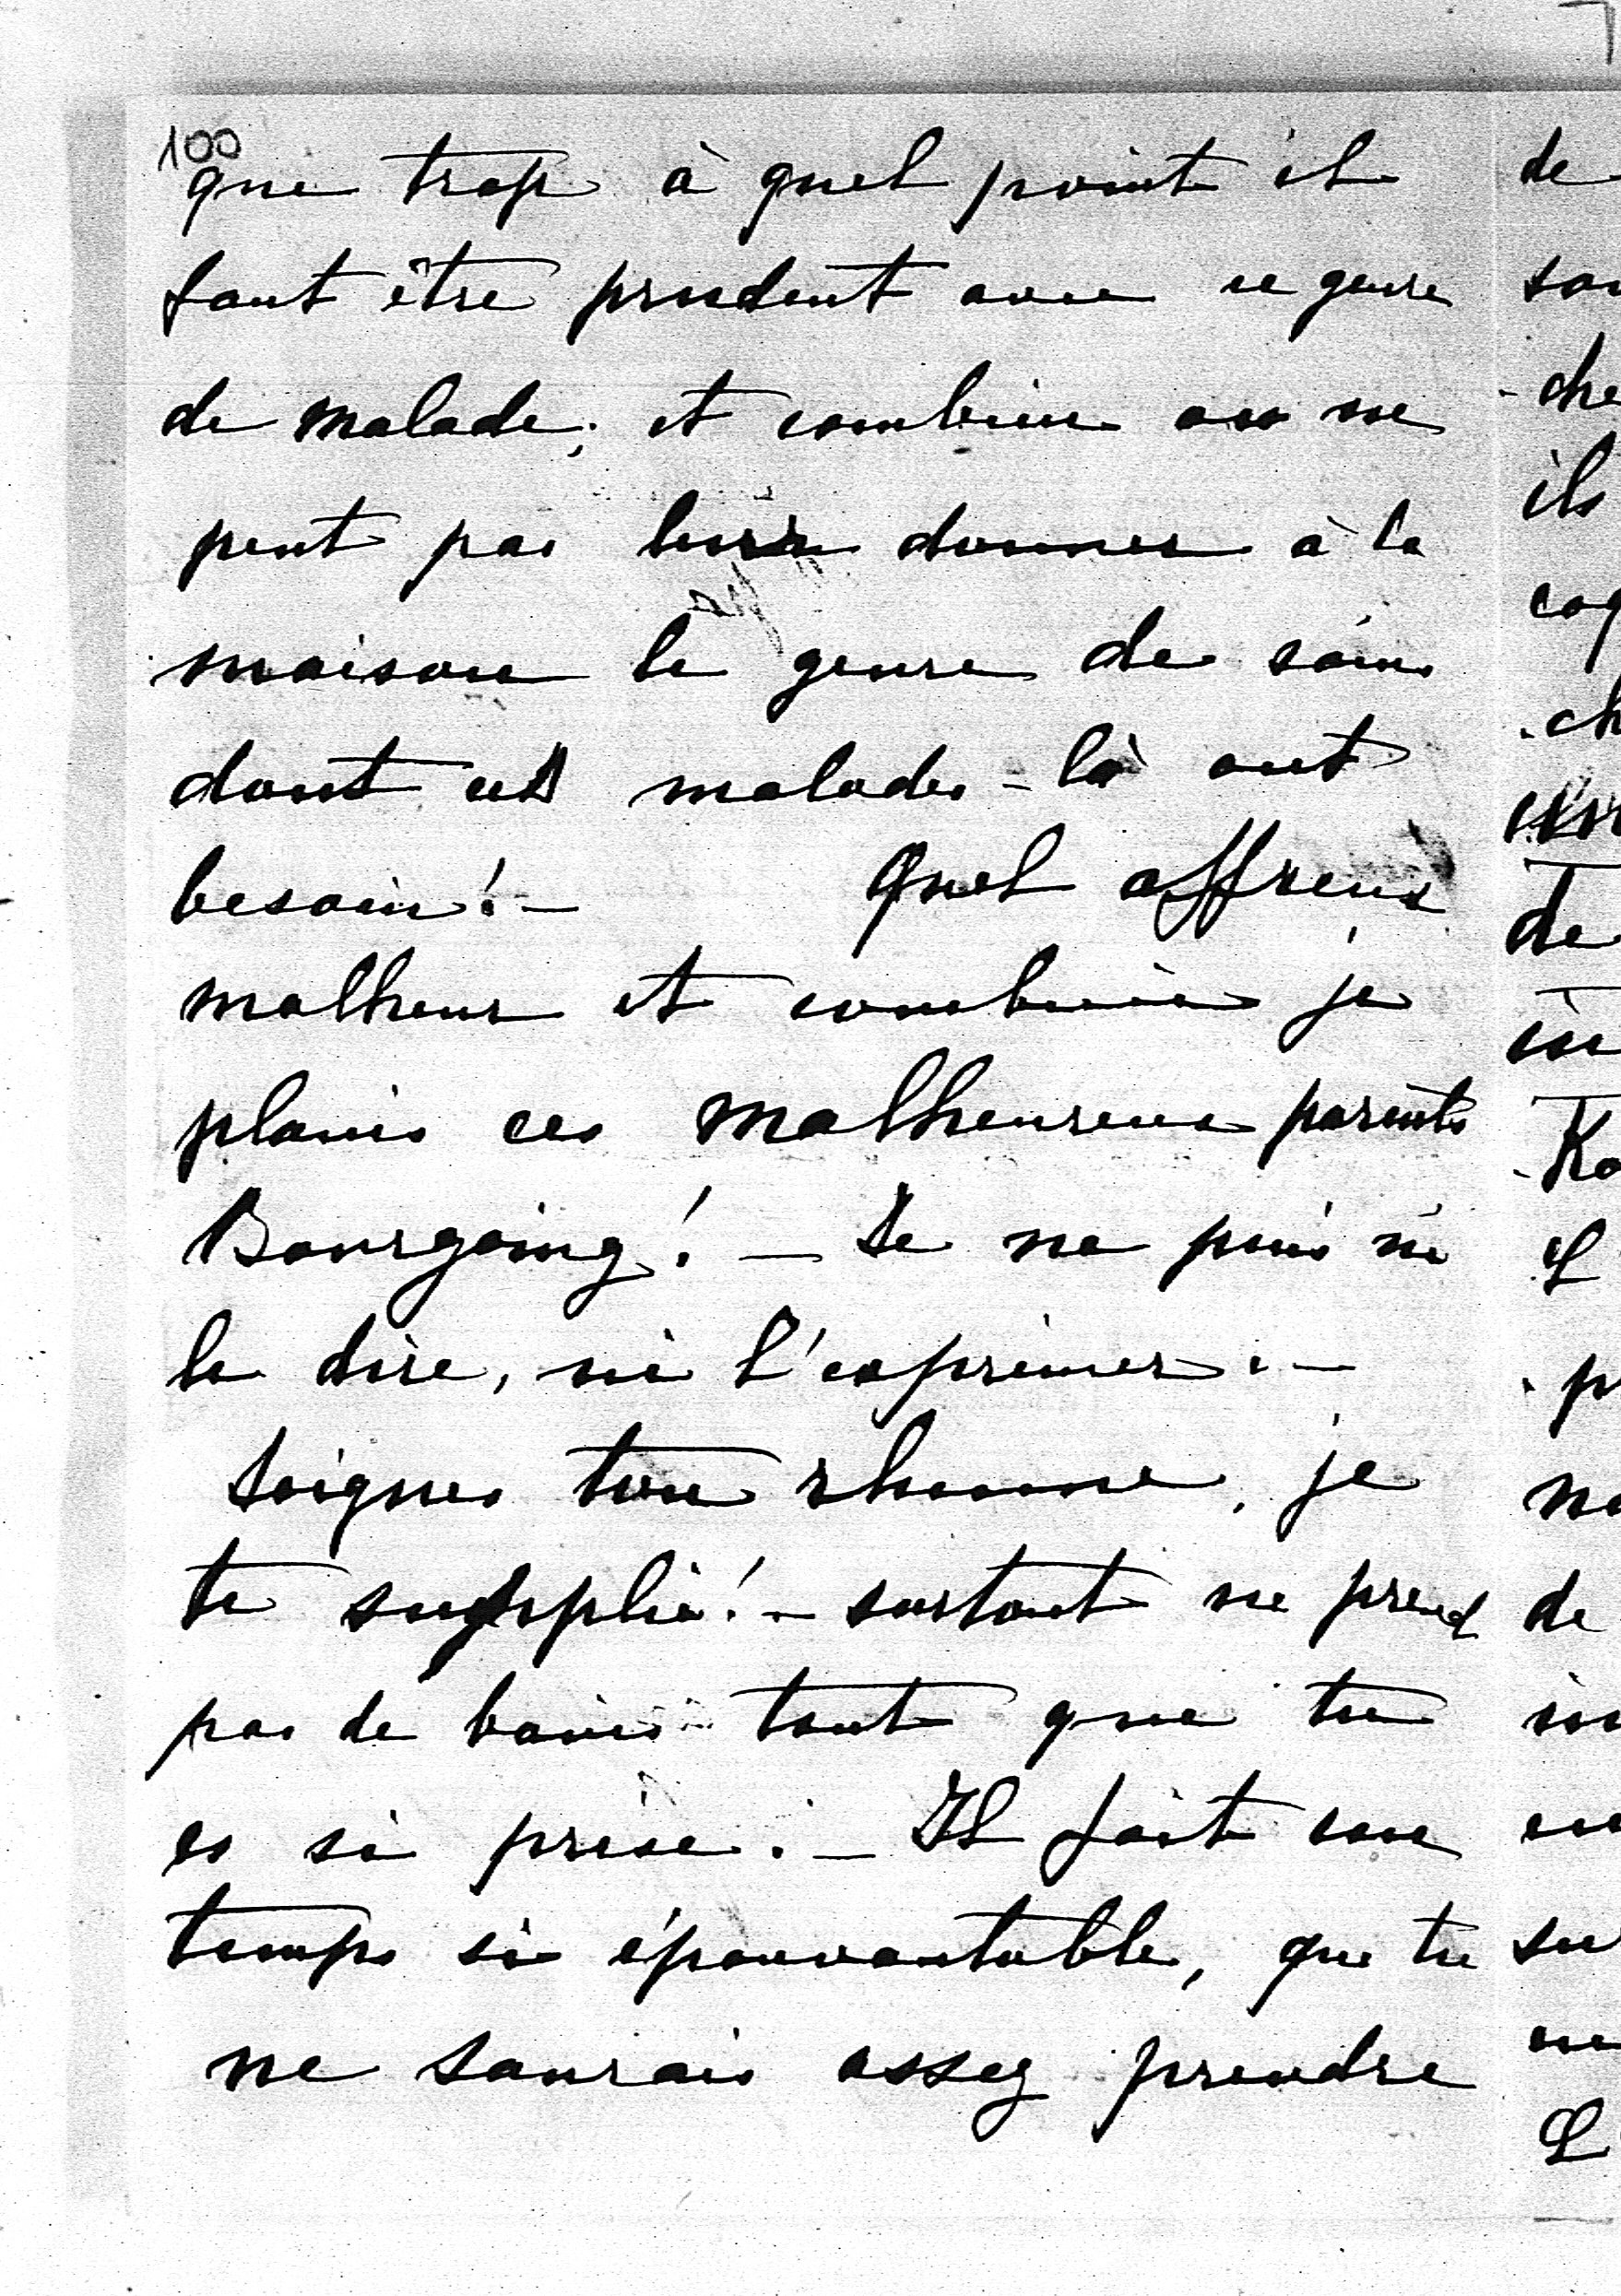 100
que trop à quel point il
faut être prudent avec ce genre
de malade; et combien on ne
peut pas leur donner à la
maison le genre de soins
dont ces malades-là ont
besoin! – Quel affreux
malheur et combien je
plains ces malheureux parents
Bourgoing! – Je ne puis ni
le dire, ni l'exprimer. –
Soignes ton rhume, je
te supplie! – surtout ne prend
pas de bains tant que tu
es si prise. – Il fait un
temps si épouvantable, que tu
ne saurais assez prendre